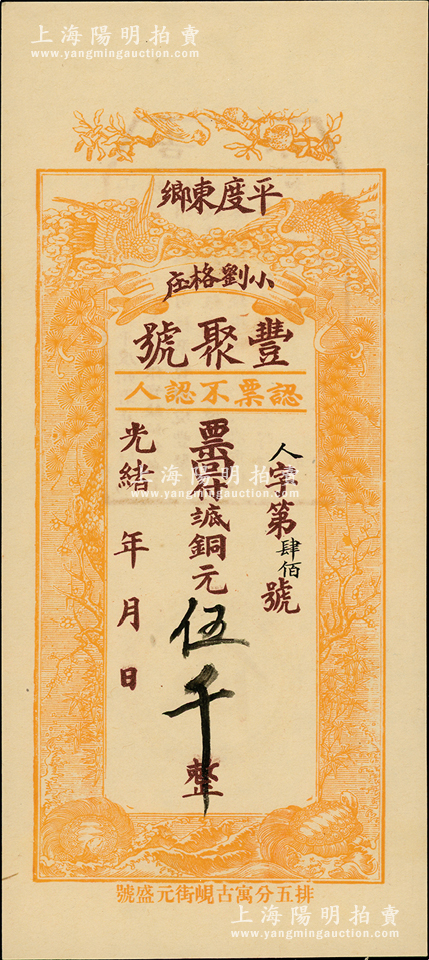 上海陽明拍賣
www.yangmingauction.com
平度東鄉
小劉格庄
豐聚號
認票不認人
人字第肆佰號
票存減銅元伍千整
光緒 年 月 日
上海陽明拍賣
www.yangmingauction.com
排五分寓古峴街元盛號
上海陽明拍賣
www.yangmingauction.com